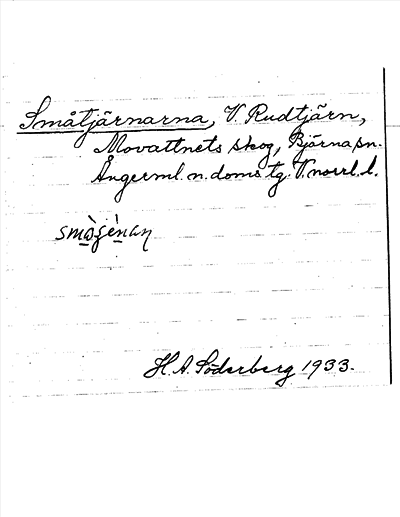 Småtjärnarna, V. Rudtjärn,
Movattnets skog, Björna sn.
Ångerml. n. doms tg. V.norrl. l.
smàjènaɳ
H. A. Söderberg 1933.